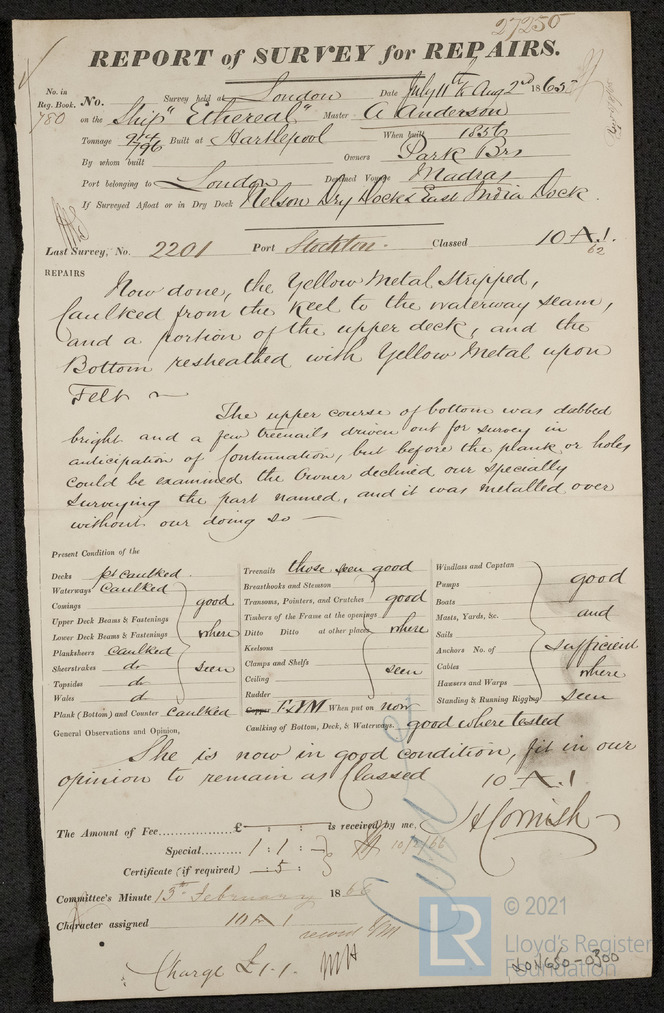 27250
REPORT of SURVEY for REPAIRS.
No. in Reg. Book. 780
No. Survey held at London Date July 11th to Aug 2nd 1865
on the Ship "Ethereal" Master A Anderson
Tonnage 914 796 Built at Hartlepool When built 1856
By whom built Owners Park Brs
Port belonging to London Destined Voyage Madras
If Surveyed Afloat or in Dry Dock Nelson Dry Dock & East India Dock.
Last Survey, No. 2201 Port Stockton. Classed 10 A.1. 62
REPAIRS
Now done, the Yellow Metal Stripped,
Caulked from the Keel to the waterway seam,
and a portion of the upper deck, and the
Bottom resheathed with Yellow Metal upon
Felt
The upper course of bottom was dubbed
bright and a few treenails driven out for survey in
anticipation of Continuation, but before the plank or holes
could be examined the Owner declined our specially
surveying the part named, and it was metalled over
without our doing so —
Present Condition of the
Decks pt caulked
Waterways Caulked
Comings good
Upper Deck Beams & Fastenings
Lower Deck Beams & Fastenings where
Planksheers caulked
Sheerstrakes do seen
Topsides do
Wales do
Plank (Bottom) and Counter Caulked
Treenails those seen good
Breasthooks and Stemson
Transoms, Pointers, and Crutches good
Timbers of the Frame at the openings
Ditto Ditto at other places where
Keelsons
Clamps and Shelfs seen
Ceiling
Rudder
Copper F&YM When put on now
Caulking of Bottom, Deck, & Waterways. good where tested
Windlass and Capstan
Pumps good
Boats
Masts, Yards, &c. and
Sails
Anchors No. of sufficient
Cables
Hawsers and Warps where
Standing & Running Rigging seen
General Observations and Opinion,
She is now in good condition, fit in our
opinion to remain as Classed 10 A.1
The Amount of Fee £ — : — : — is received by me, H Cornish
Special 1 : 1 : — 10/2/66
Certificate (if required) — : 5 :
Committee's Minute 13th February 1866
Character assigned 10 A 1
record YM
Charge £1.1.
MH
LR
© 2021
Lloyd's Register
Foundation
LON650-0300